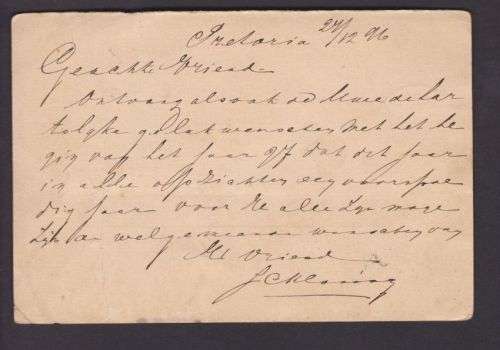 Pretoria 27/12 96
Geachte Vriend
Ontvang alsook de
gelukwenschen met het be
gin van het Jaar 97 dat dit Jaar
in alle opzichten een voorspoe
dig Jaar voor U alle zyn moge
zyn de welgemeende wenschen van
Uw Vriend